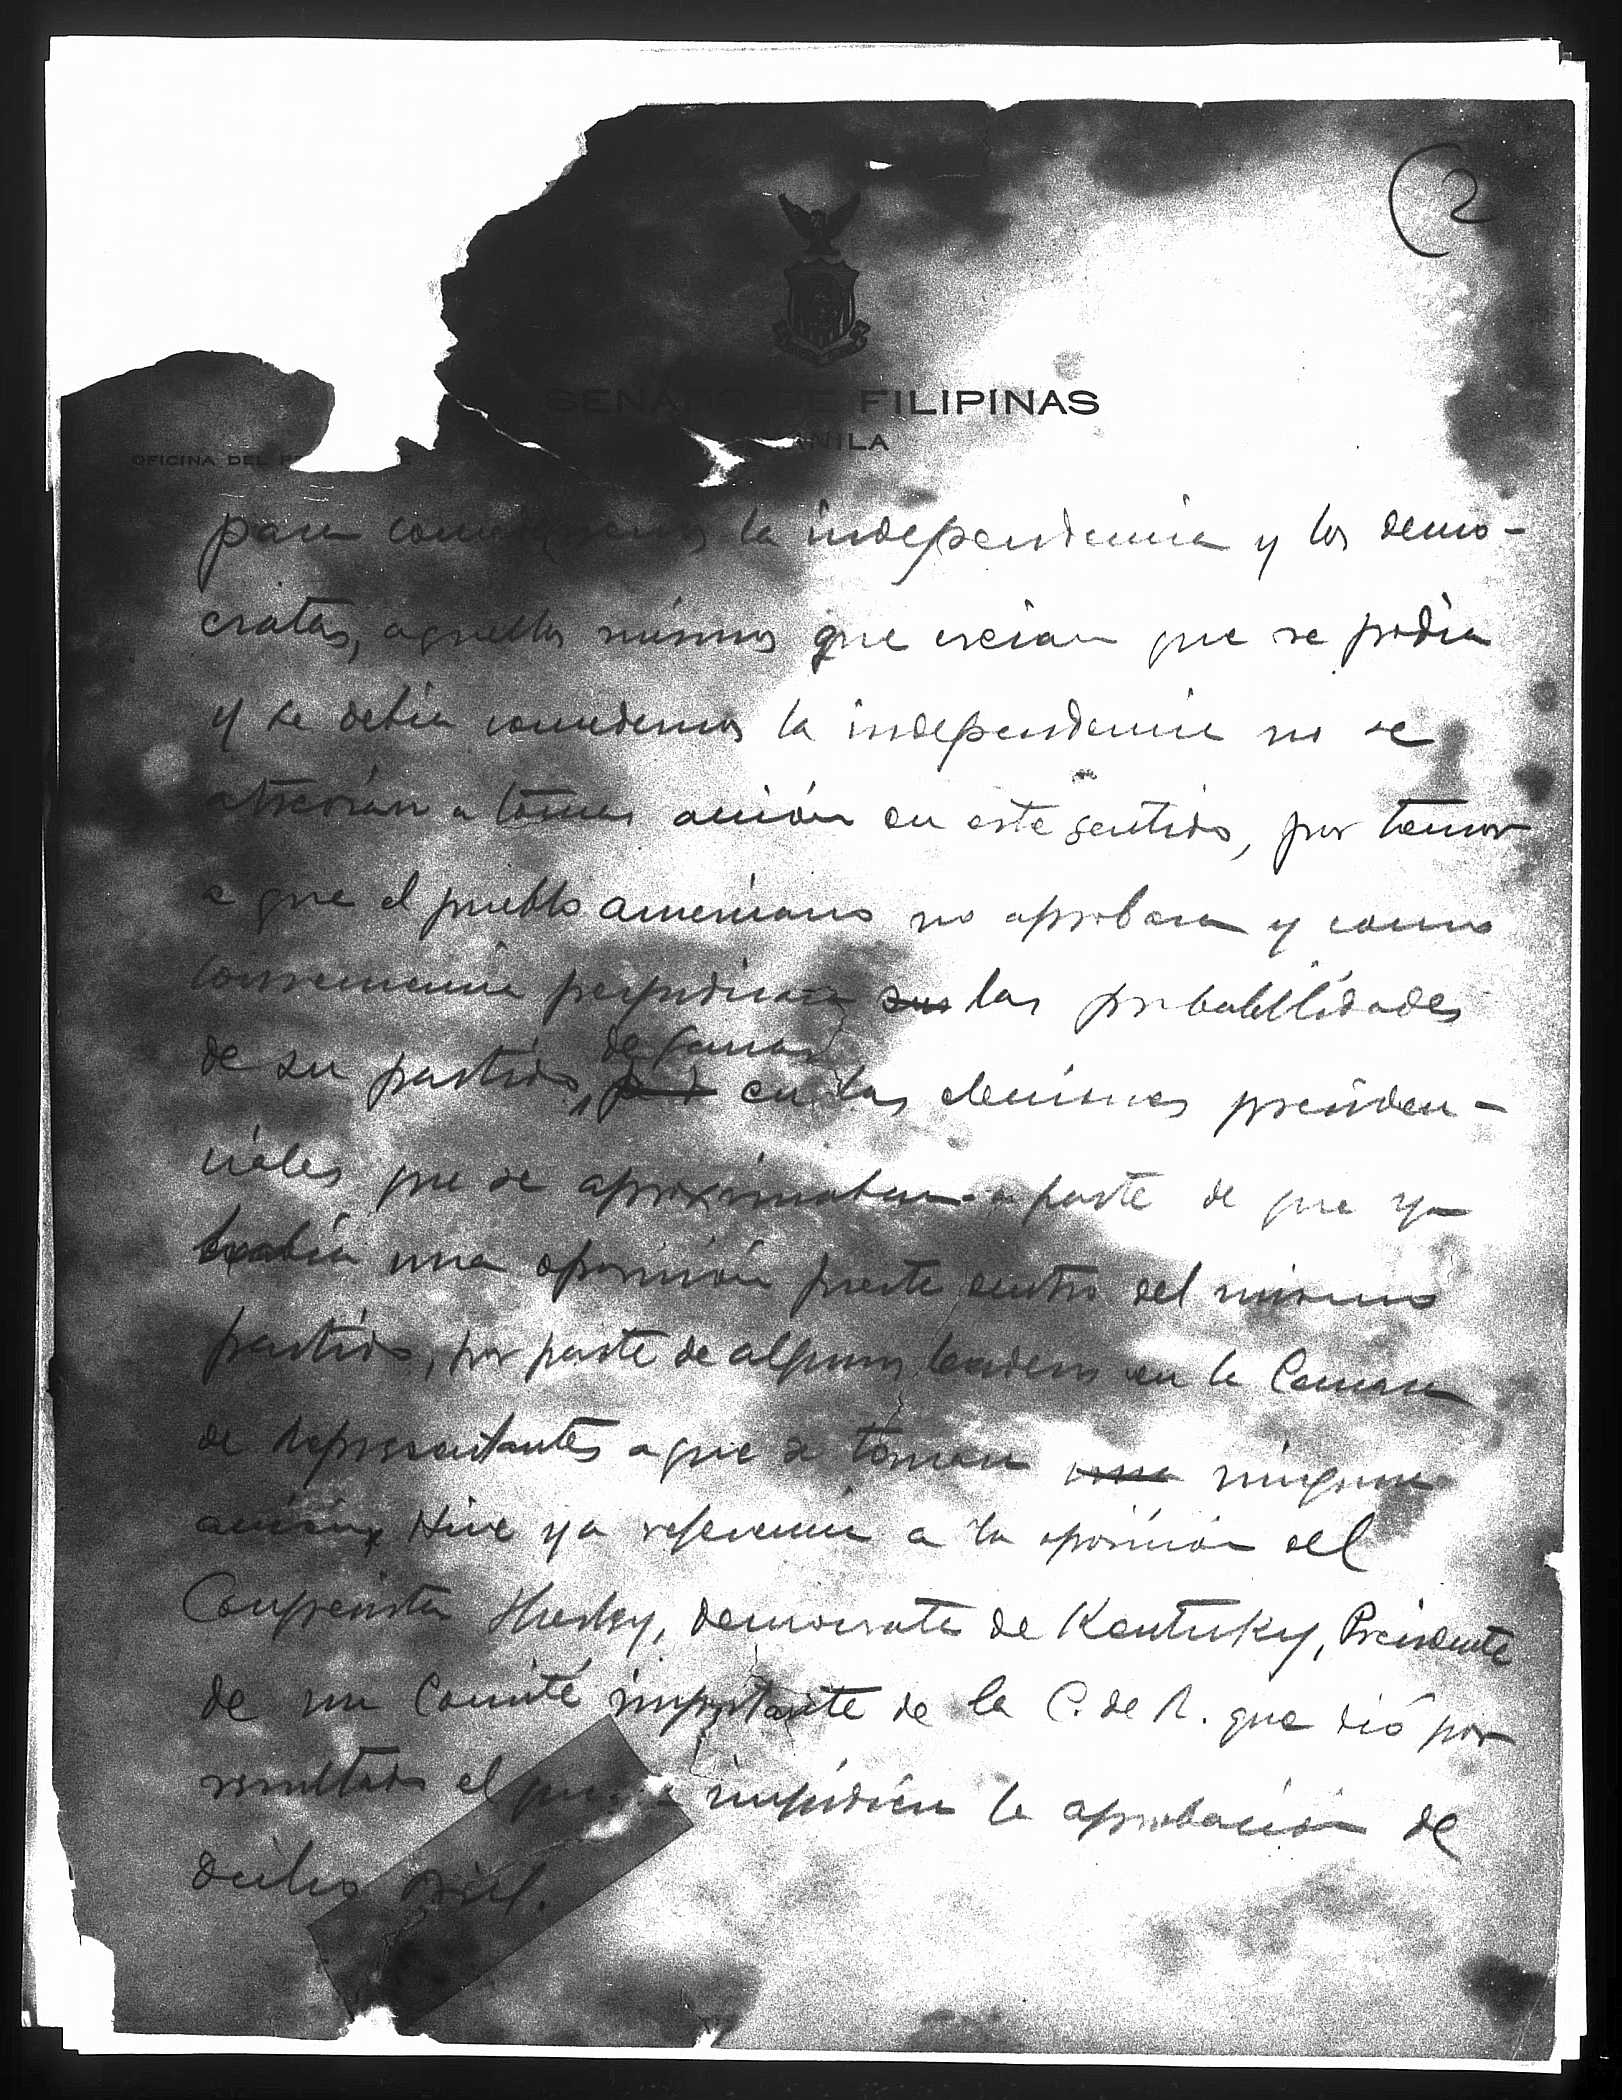 (2
SENADO DE FILIPINAS
MANILA
OFICINA DEL
para la independencia y los demo-
cratas, aquellos mismos que creian que se podia
y se debia concedernos la independencia no se
atrevian a tomar acción en este sentido, por temor
a que el pueblo americano no aprobara y como
consecuencia perjudicara sus las probabilidades
de su partido, de ganar en las elecciones presiden-
ciales que se aproximaban aparte de que ya
habia una oposición fuerte dentro del mismo
partido, por parte de algunos leaders en la Camara
de Representantes a que se tomara una ninguna
acción. Hice ya referencia a la oposición del
Congresista democrata de Kentuky, Presidente
de un Comité importante de la C. de R. que dió por
resultado el que se impidiera la aprobación de
dicho bill.